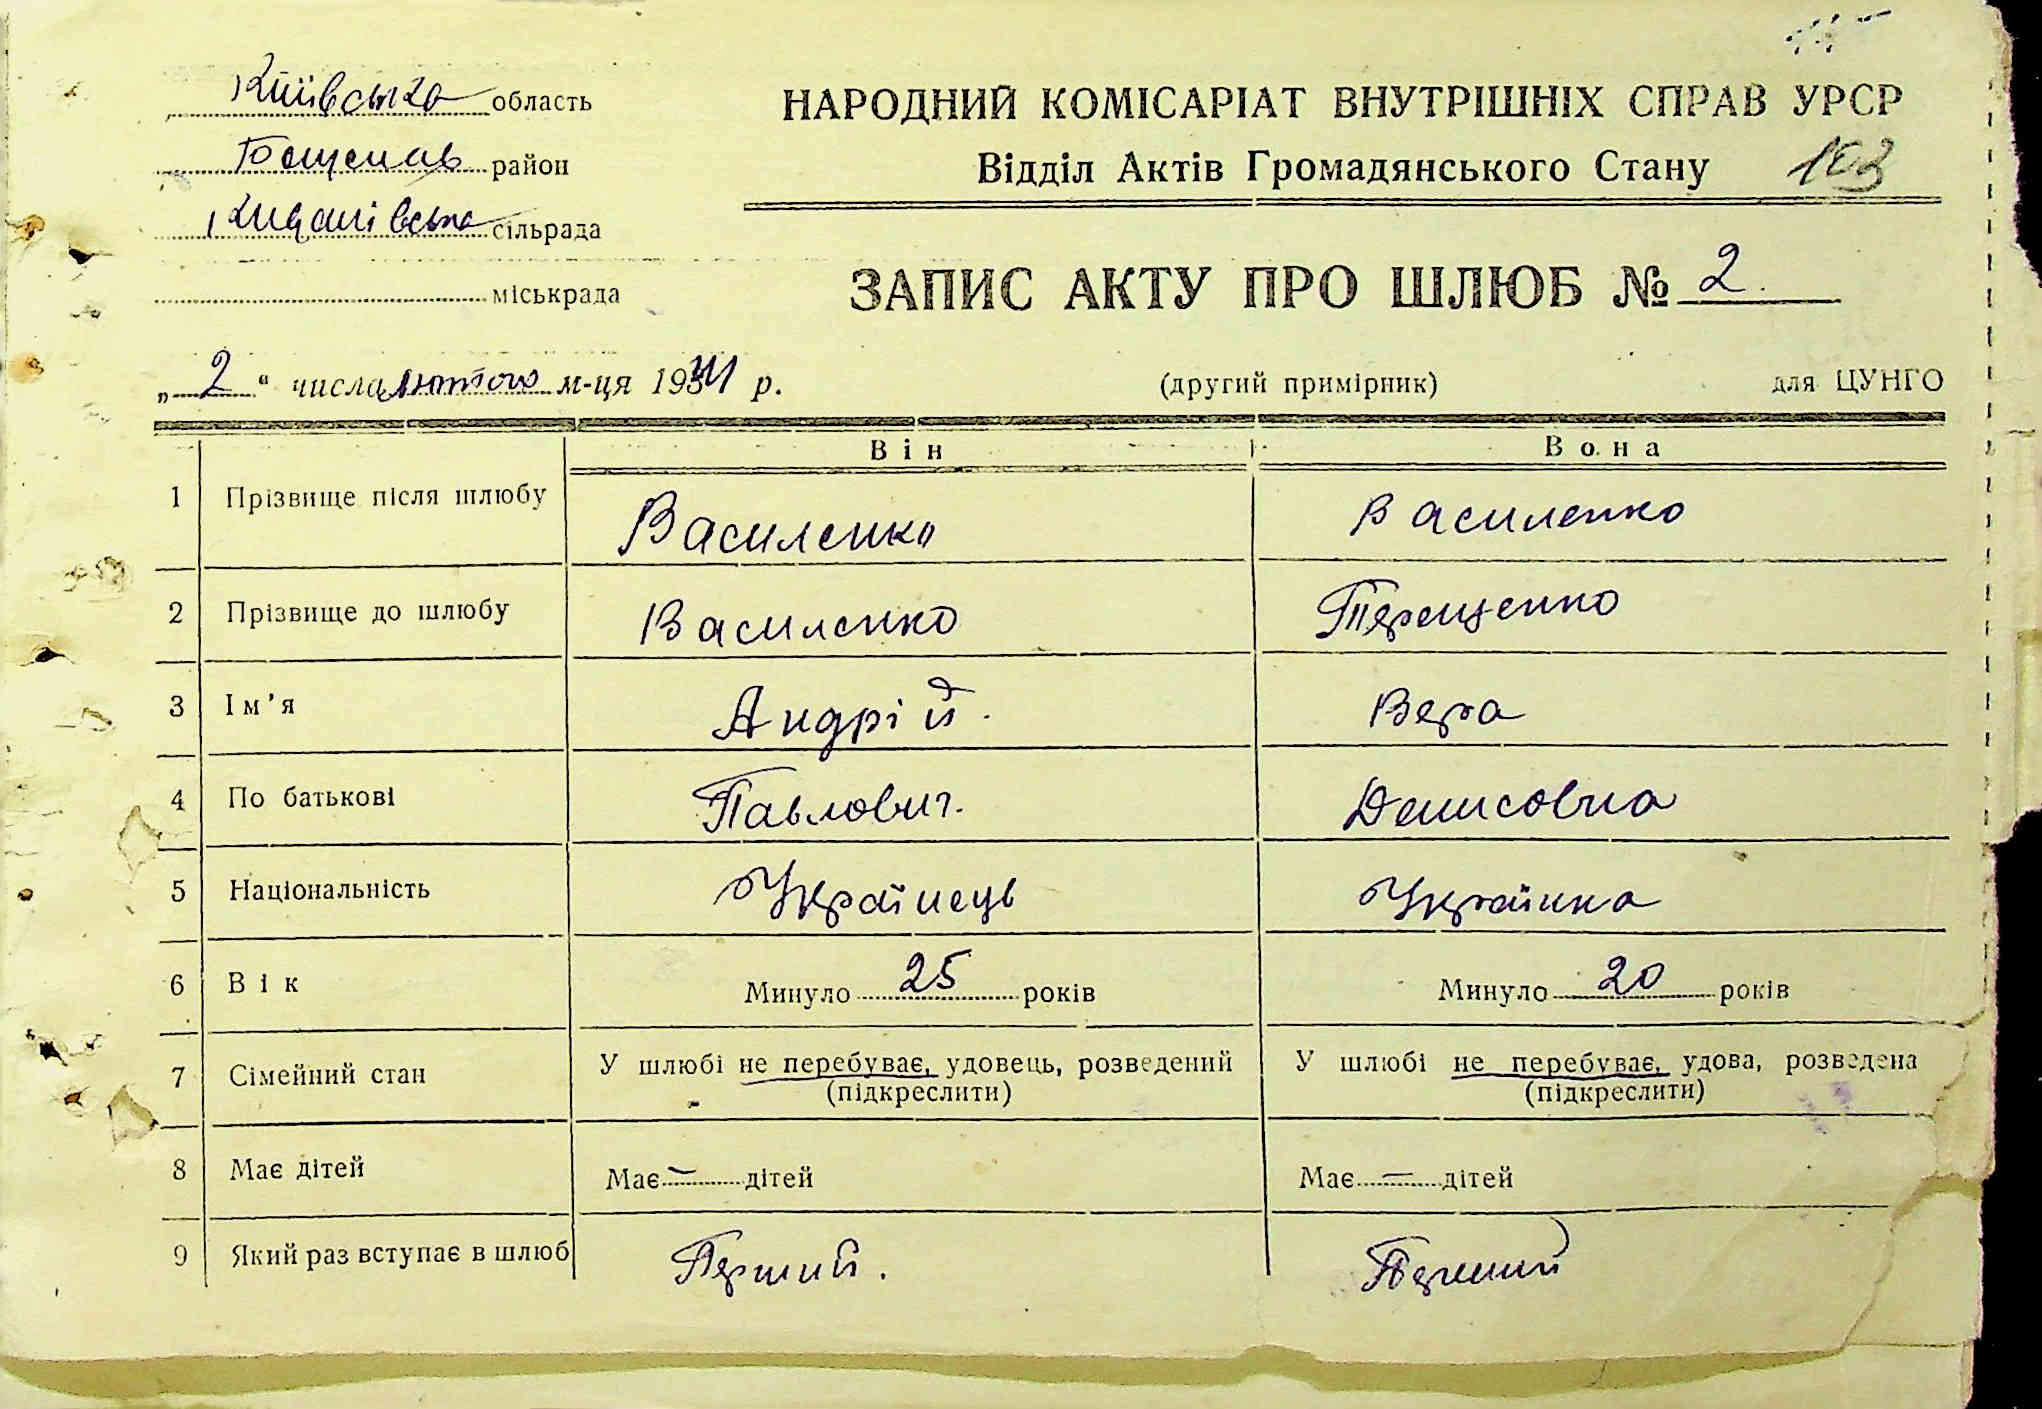 Київська область
НАРОДНИЙ КОМІСАРІАТ ВНУТРІШНІХ СПРАВ УРСР
район
Відділ Актів Громадянського Стану 103
сільрада
міськрада
ЗАПИС АКТУ ПРО ШЛЮБ № 2.
„ 2 “ числа лютого м-ця 1941 р. (другий примірник) для ЦУНГО
Він Вона
1 Прізвище після шлюбу Василенко Василенко
2 Прізвище до шлюбу Василенко Терещенко
3 Ім'я Андрій. Вера
4 По батькові Павлович. Денисовна
5 Національність Українець Українка
6 Вік Минуло 25 років Минуло 20 років
7 Сімейний стан У шлюбі не перебуває, удовець, розведений У шлюбі не перебуває, удова, розведена
(підкреслити) (підкреслити)
8 Має дітей Має – дітей Має – дітей
9 Який раз вступає в шлюб Перший. Перший